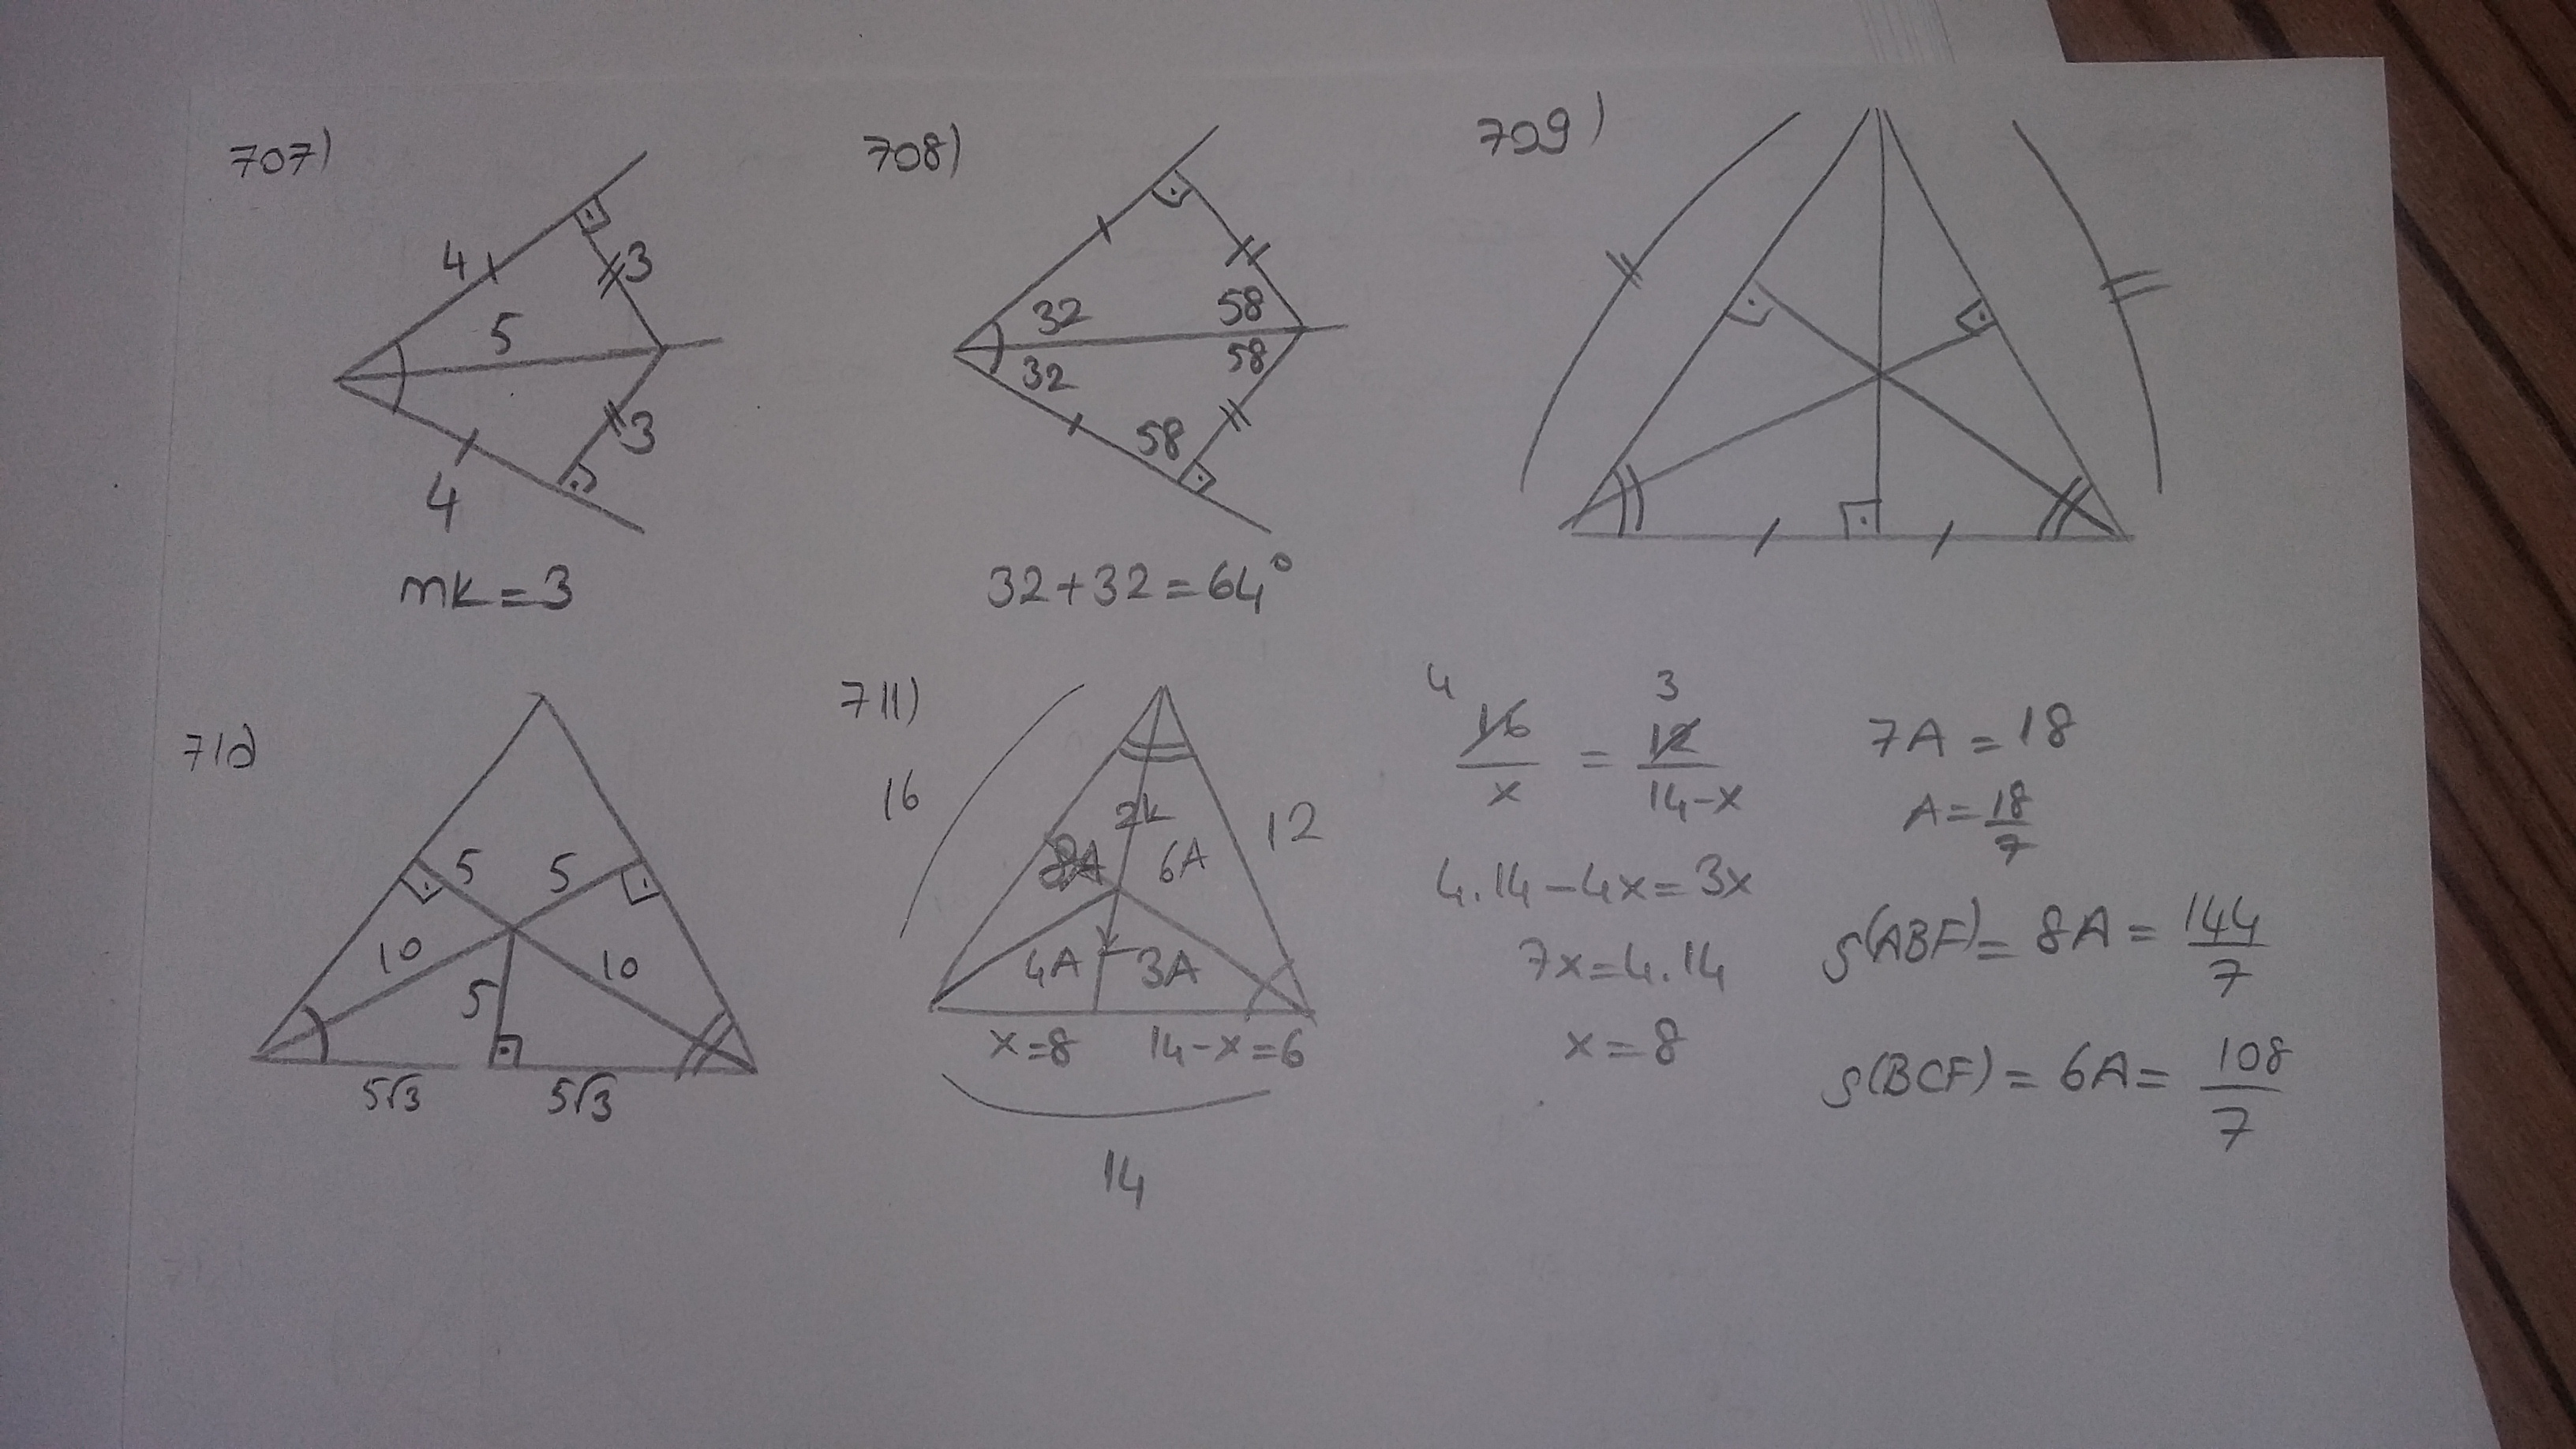 707)
4
3
5
3
4
mk = 3
708)
32
58
32
58
58
32+32=64°
709)
710)
5
5
10
10
5
5√3
5√3
711)
16
12
2k
6A
4A
k
3A
x=8
14-x=6
14
4
3
16/x = 12/14-x
4.14-4x=3x
7x=4.14
x=8
7A=18
A=18/7
S(ABF)=8A=144/7
S(BCF)=6A=108/7